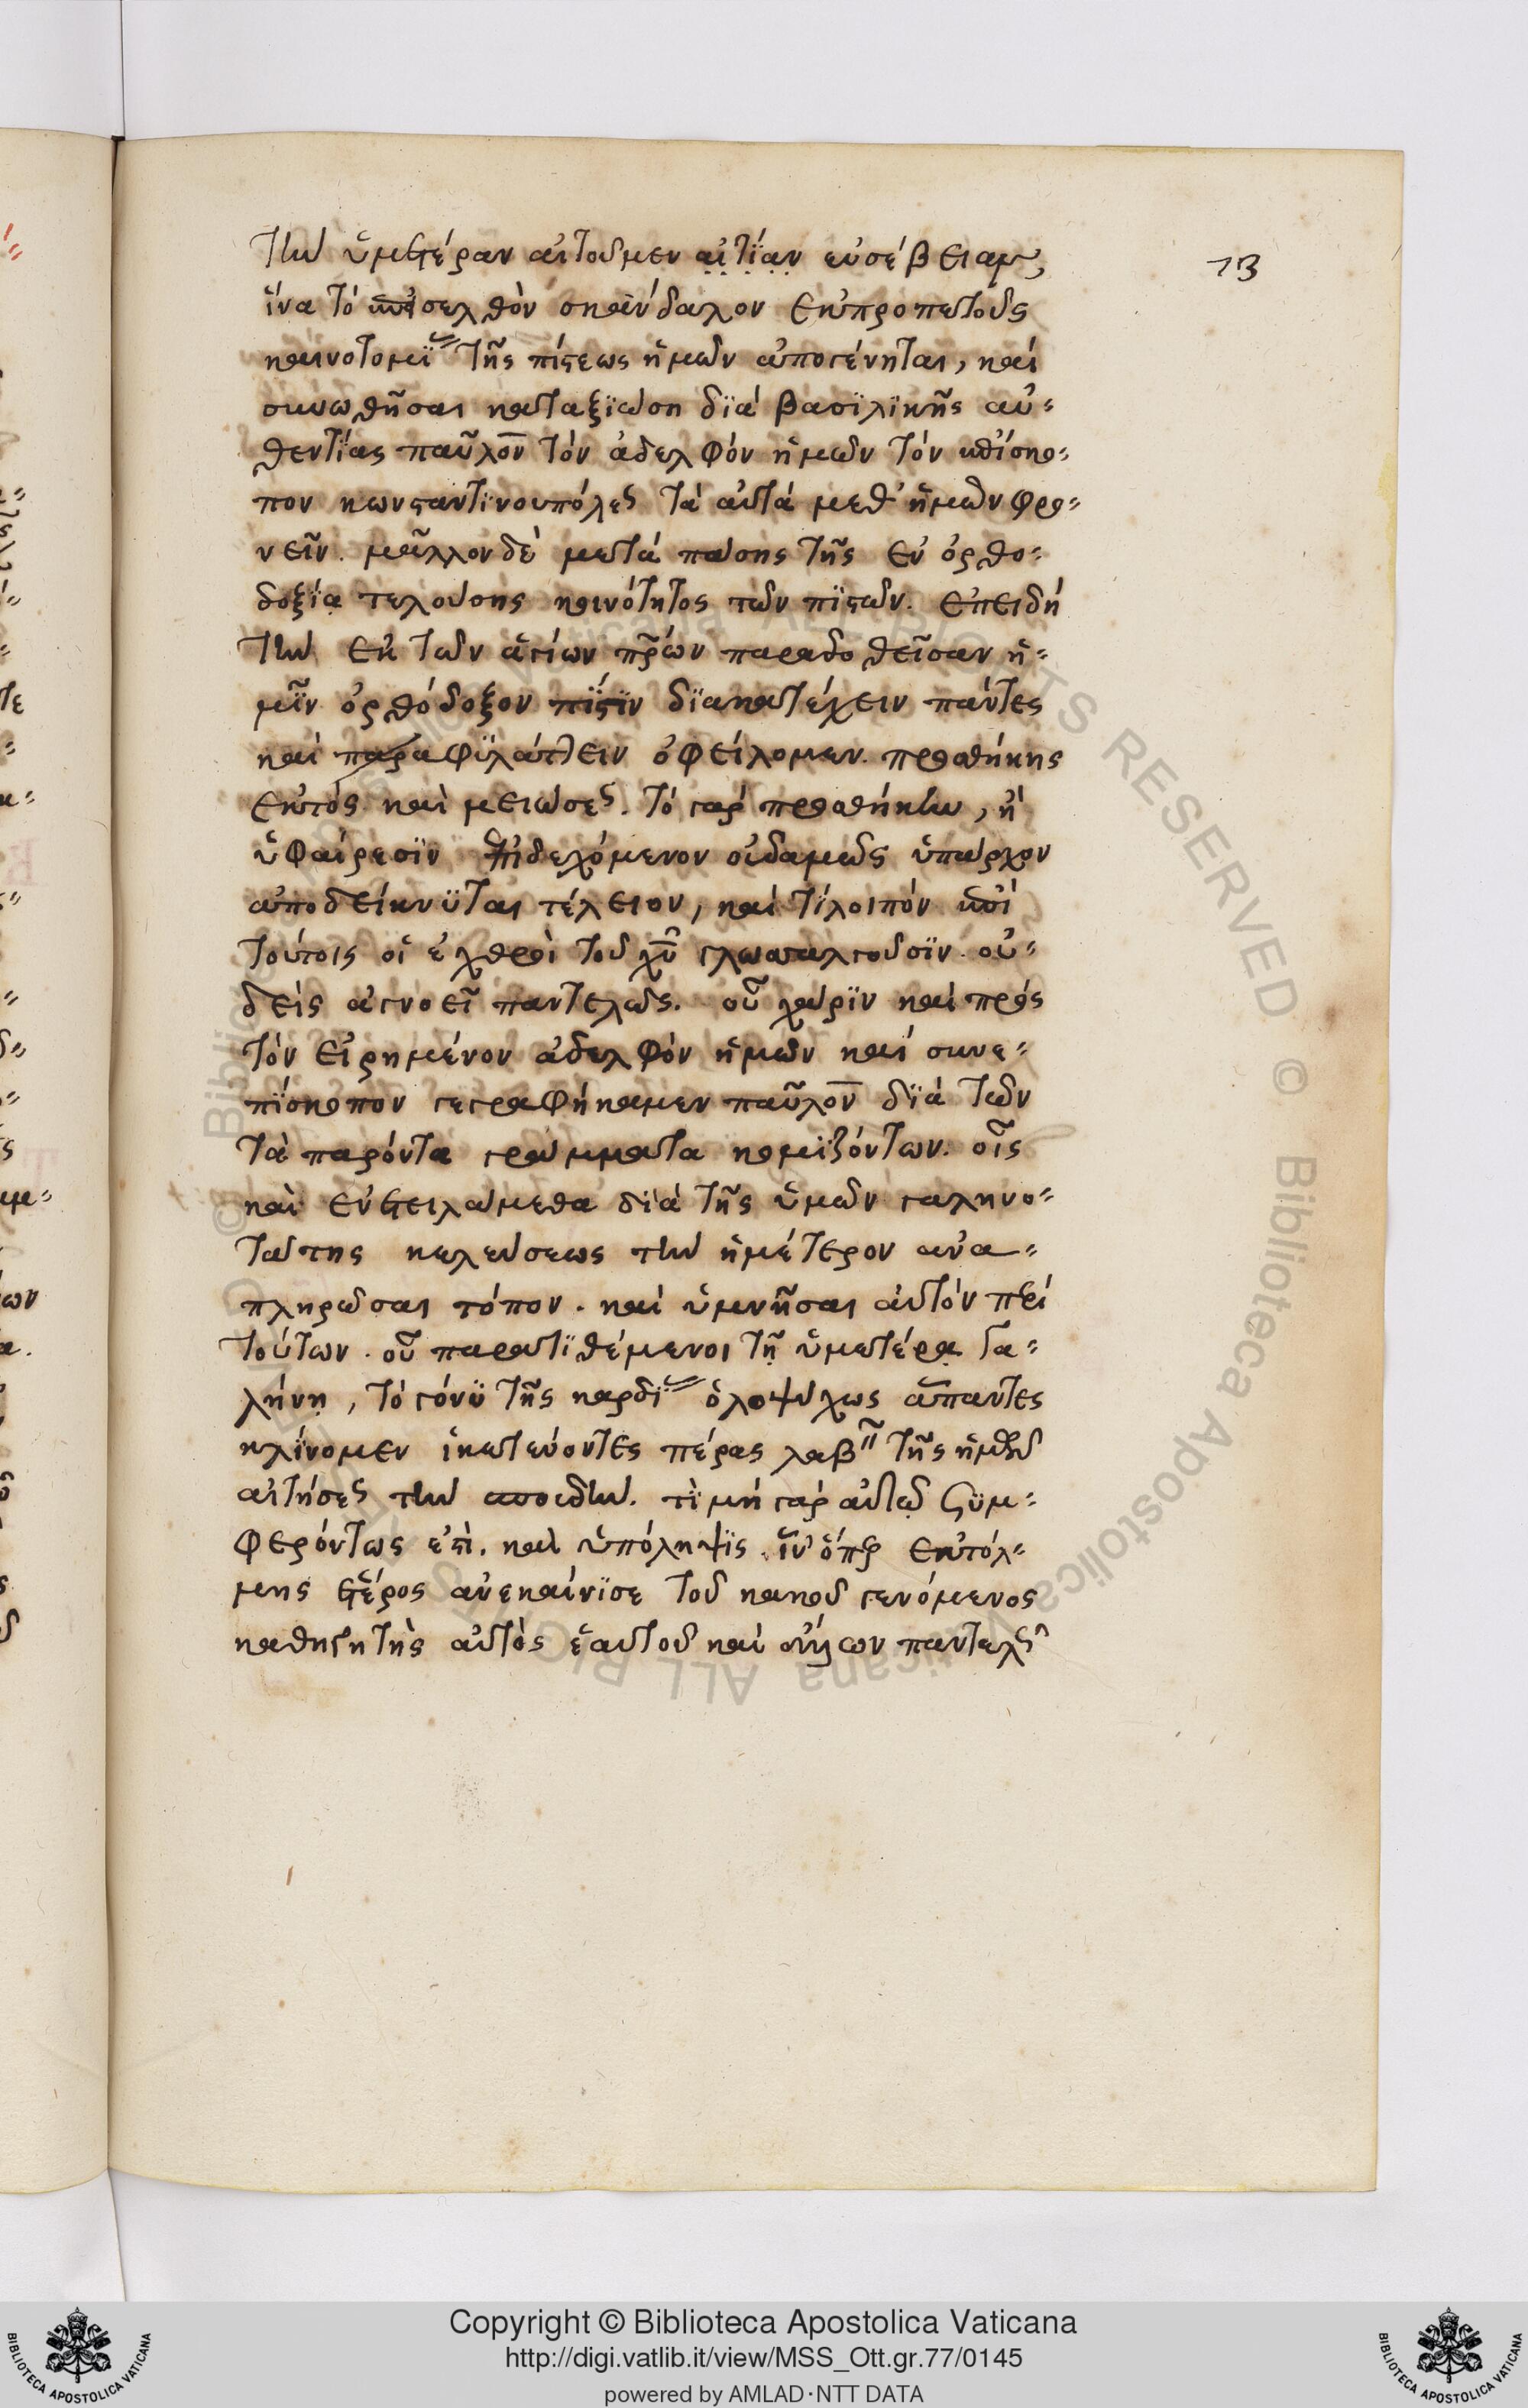 τὴν ὑμετέραν αἰτοῦμεν αἰτίαν εὐσέβειαν,
ἵνα τὸ ἐπεισελθὸν σκάνδαλον ἐκ προπετοῦς
καινοτομί(ας) τῆς πίστεως ἡμῶν ἀπογένηται, καὶ
συνωθῆσαι καταξιώσῃ διὰ βασϊλϊκῆς αὐ-
θεντίας παῦλον τὸν ἀδελφὸν ἡμῶν τὸν ἐπίσκο-
πον κωνσταντϊνουπόλε(ως) τὰ αὐτὰ μεθ' ἡμῶν φρο-
νεῖν. μᾶλλον δὲ μετὰ πάσης τῆς ἐν ὀρθο-
δοξίᾳ τελούσης κοινότητος τῶν πϊστῶν. ἐπειδὴ
τὴν ἐκ τῶν ἁγίων πρων παραδοθεῖσαν ἡ-
μῖν ὀρθόδοξον πίστϊν δϊακατέχειν πάντες
καὶ παραφϋλάττειν ὀφείλομεν. προσθήκης
ἐκτὸς καὶ μειώσε(ως). τὸ γὰρ προσθήκην, ἢ
ὑφαίρεσϊν ἐπιδεχόμενον οὐδαμῶς ὑπάρχον
ἀποδείκνϋται τέλειον, καὶ τί λοιπὸν ἐπὶ
τούτοις οἱ ἐχθροὶ τοῦ χυ γλωσσαλγοῦσϊν. οὐ-
δεὶς ἀγνοεῖ παντελῶς. οὗ χάρϊν καὶ πρὸς
τὸν εἰρημένον ἀδελφὸν ἡμῶν καὶ συνε-
πίσκοπον γεγραφήκαμεν παῦλον δϊὰ τῶν
τὰ παρόντα γράμματα κομϊζόντων. οἷς
καὶ ἐνετειλάμεθα δϊὰ τῆς ὑμῶν γαληνο-
τάτης κελεύσεως τὴν ἡμέτερον ἀνα-
πληρῶσαι τόπον. καὶ ὑμνῆσαι αὐτὸν περὶ
τούτων. οὗ παρατϊθέμενοι τῇ ὑμετέρᾳ γα-
λήνῃ, τὸ γόνϋ τῆς καρδί(ας) ὁλοψύχως ἅπαντες
κλίνομεν ἱκετεύοντες πέρας λαβεῖν τῆς ἡμῶν
αἰτήσε(ως) τὴν σπουδήν. τϊμὴ γὰρ αὐτῷ ϛϋμ-
φερόντως ἐστὶ. καὶ ὑπόληψϊς. ἵν' ὅπερ ἐκ τόλ-
μης ἕτερος ἀνεκαίνϊσε τοῦ κακοῦ γενόμενος
καθηγητὴς αὐτὸς ἑαυτοῦ καὶ παντελῶς
13
Copyright © Biblioteca Apostolica Vaticana
http://digi.vatlib.it/view/MSS_Ott.gr.77/0145
powered by AMLAD·NTT DATA